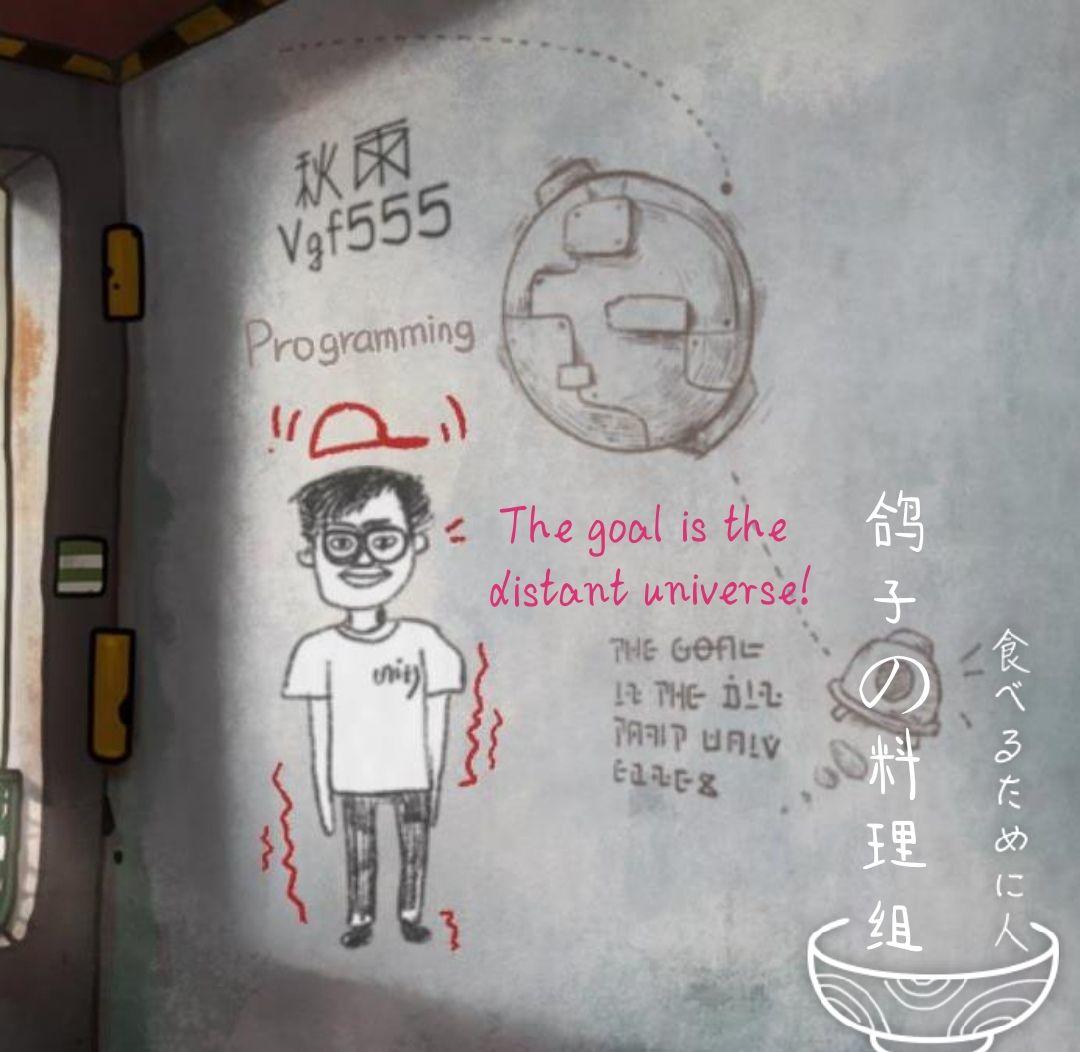 秋雨
Vgf555
Programming
The goal is the
distant universe!
unity
THE GOAL
鸽子の料理组
食べるために人